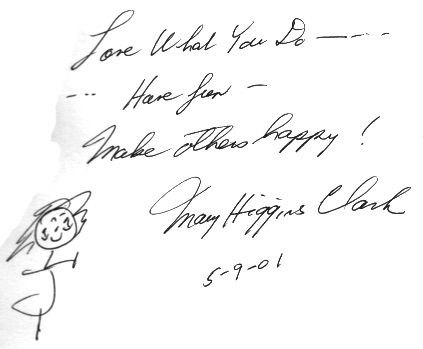 Love What You Do — - - -
- - - Have fun -
Make others happy !
Mary Higgins Clark
5-9-01